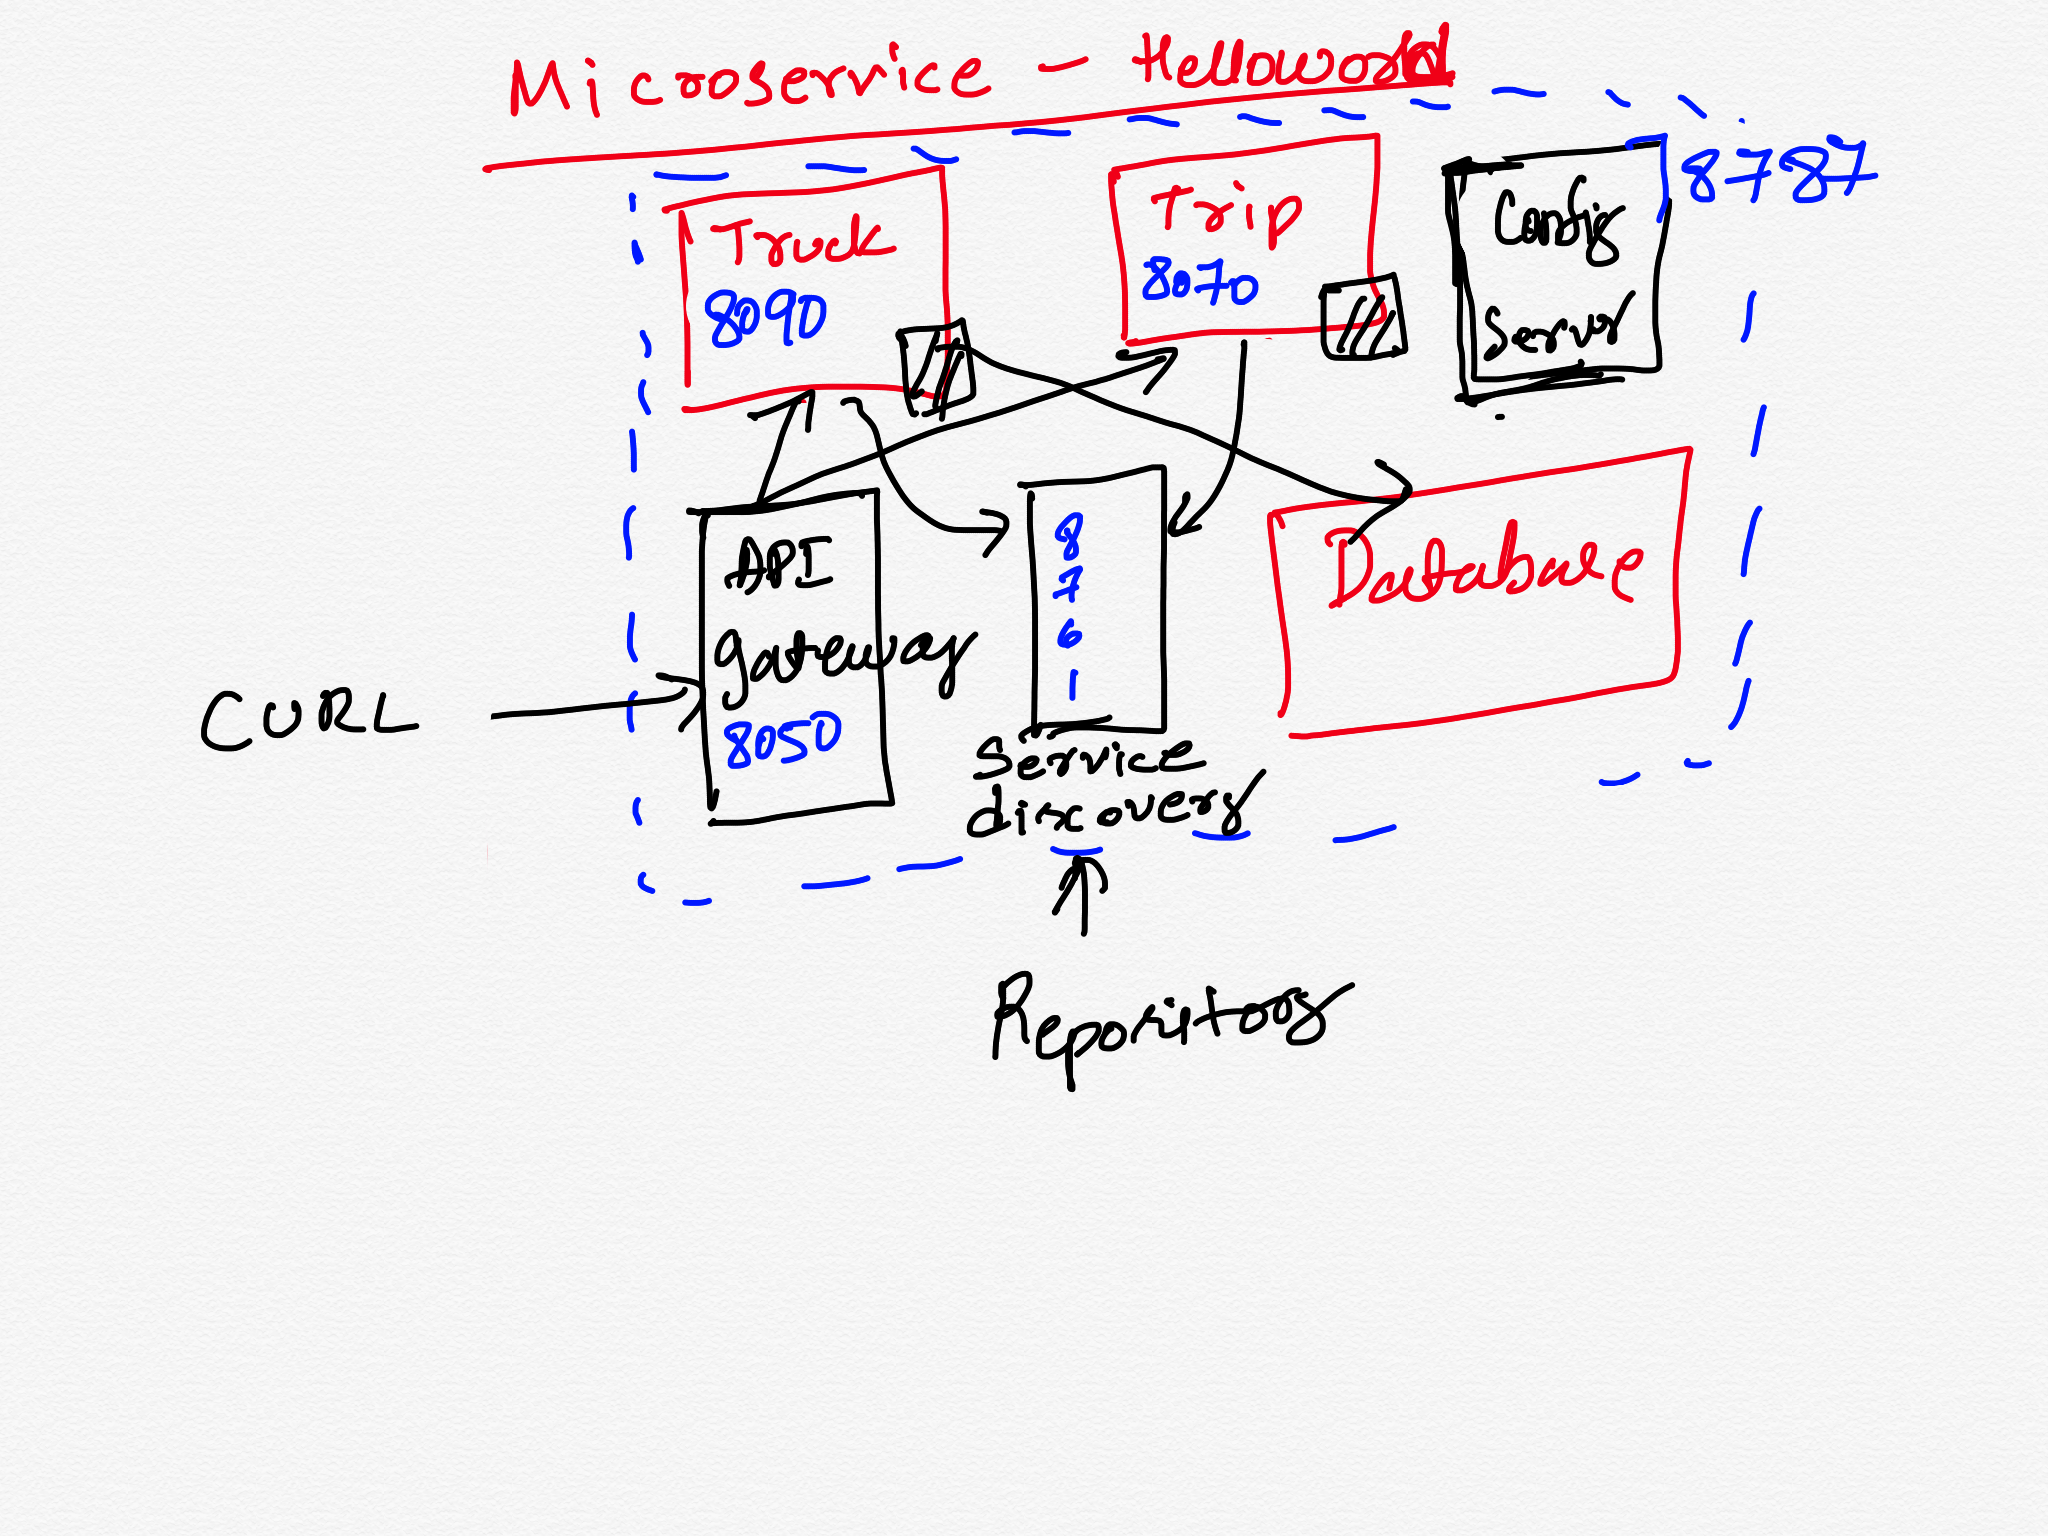 Microservice - Helloworld
Truck
8090
Trip
8070
Config
Server
8787
API
gateway
8050
8
7
6
1
Service
discovery
Database
CURL
Repository